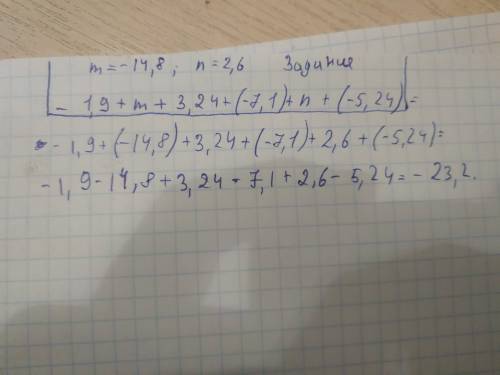 m=-14,8; n=2,6 Задание
- 1,9+m+3,24+(-7,1)+n+(-5,24)=
- 1,9+(-14,8)+3,24+(-7,1)+2,6+(-5,24)=
-1,9-14,8+3,24-7,1+2,6-5,24=-23,2.